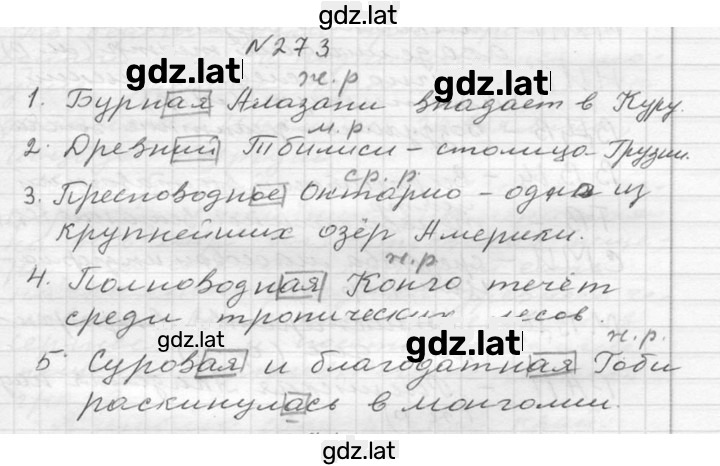 gdz.lat
№273
gdz.lat gdz.lat
ж.р
1. Бурная Алазани впадает в Куру.
м.р
2. Древний Тбилиси - столица Грузии.
ср.р.
3. Пресноводное Онтарио - одно из
крупнейших озёр Америки.
ж.р
4. Полноводная Конго течёт
среди тропических лесов.
gdz.lat gdz.lat ж.р.
5. Суровая и благодатная Гоби
раскинулась в монголии.
gdz.lat